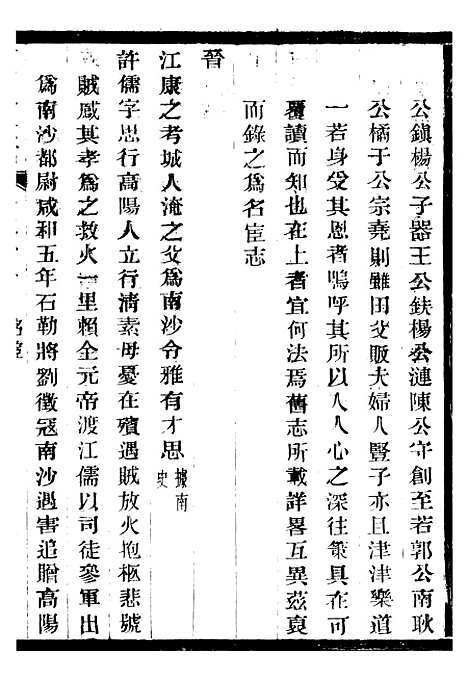 公鎮楊公子器王公鈇楊公漣陳公守創至若郭公南耿
公橘于公宗堯則雖田父販夫婦人豎子亦且津津樂道
一若身受其恩者嗚呼其所以入人心之深往策具在可
覆讀而知也在上者宜何法焉舊志所載詳畧互異茲裒
而錄之為名宦志
晉
江康之考城人淹之父為南沙令雅有才思據南史
許儒字思行高陽人立行清素母憂在殯遇賊放火抱柩悲號
賊感其孝為之救火一里賴全元帝渡江儒以司徒參軍出
為南沙都尉咸和五年石勒將劉徵寇南沙遇害追贈高陽